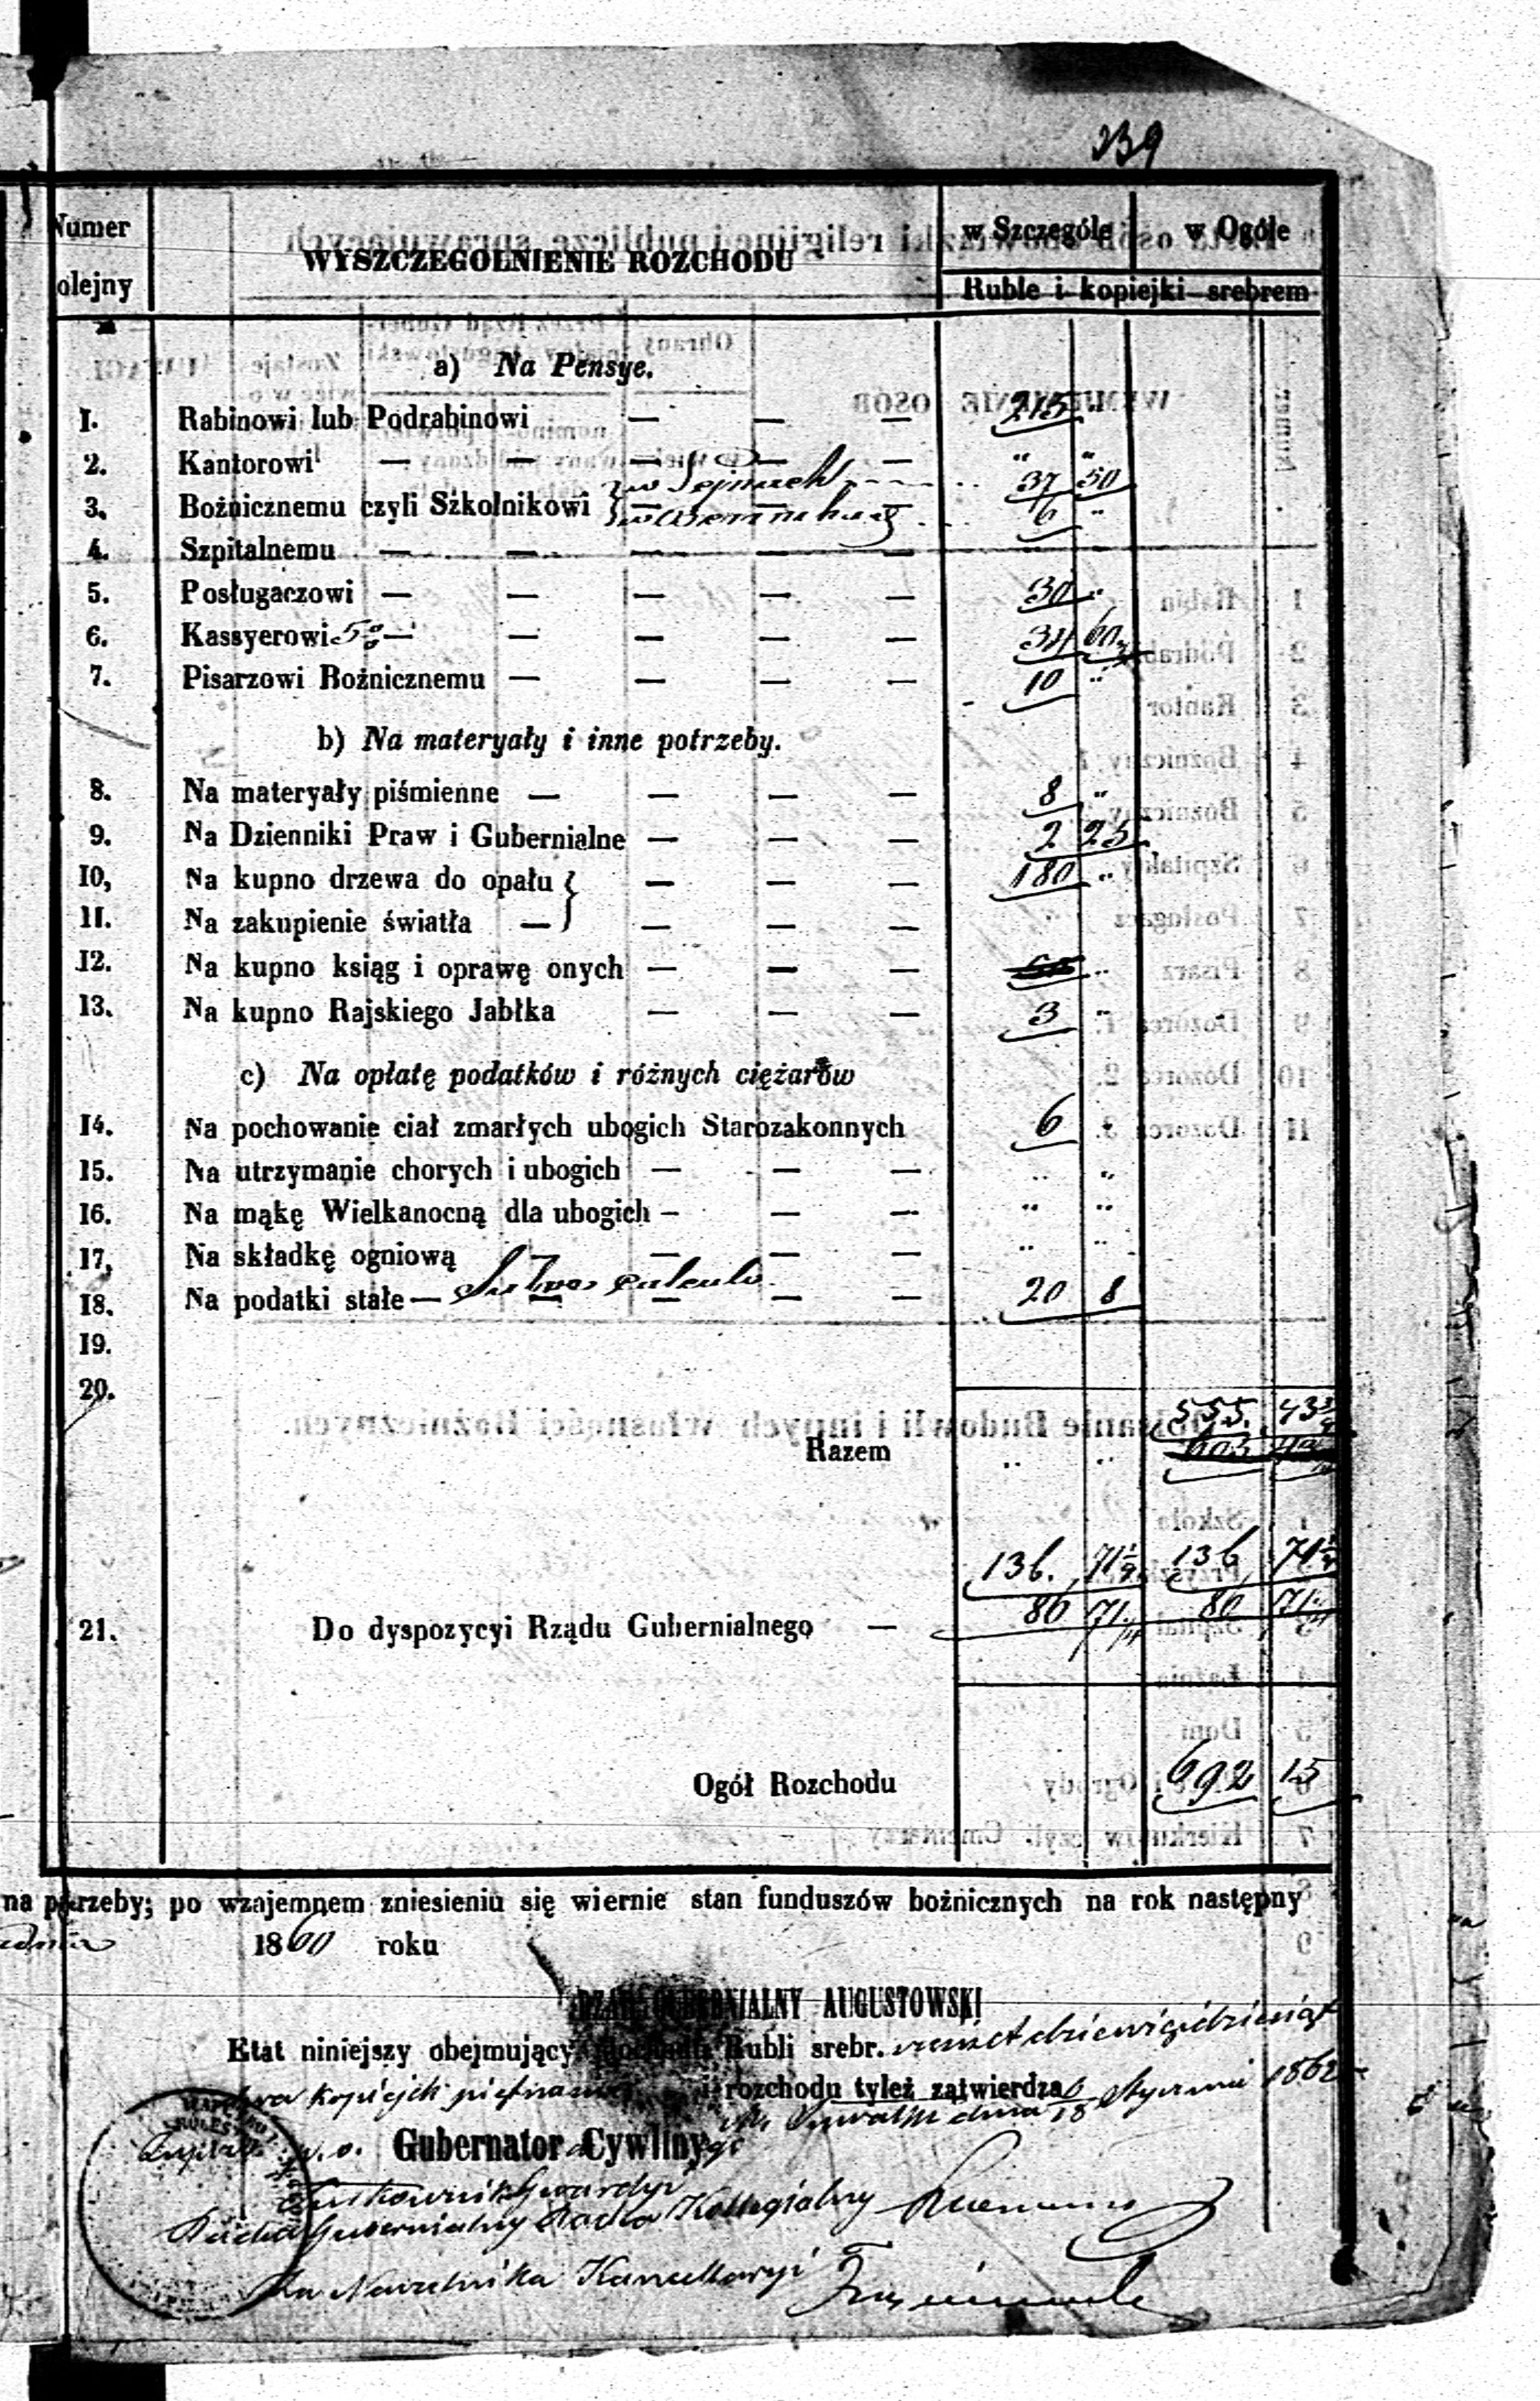 239
Numer
olejny
WYSZCZEGÓLNIENIE ROZCHODU
w Szczególe w Ogóle
Ruble i kopiejki srebrem
a) Na Pensye.
1. Rabinowi lub Podrabinowi — — — 215 "
2. Kantorowi — — — — — " "
w Sejnach 37 50
3. Bożnicznemu czyli Szkolnikowi — — 6 "
4. Szpitalnemu — — — — — " "
5. Posługaczowi — — — — — 30 "
6. Kassyerowi 5% — — — — — 34 60
7. Pisarzowi Bożnicznemu — — — — 10 "
b) Na materyały i inne potrzeby.
8. Na materyały piśmienne — — — — 8 "
9. Na Dzienniki Praw i Gubernialne — — — 2 25
10, Na kupno drzewa do opału } — — — 180 "
11. Na zakupienie światła — } — — —
12. Na kupno ksiąg i oprawę onych — — — "
13. Na kupno Rajskiego Jabłka — — — 3 "
c) Na opłatę podatków i różnych ciężarów
14. Na pochowanie ciał zmarłych ubogich Starozakonnych 6
15. Na utrzymanie chorych i ubogich — — — " "
16. Na mąkę Wielkanocną dla ubogich — — — " "
17, Na składkę ogniową — — — " "
18. Na podatki stałe — Salvo calculo — — — — 20 8
19.
20.
555. 43 3/4
Razem " "
136. 71 1/4 136 71 1/4
21. Do dyspozycyi Rządu Gubernialnego — 86 71 1/4 86 71 1/4
Ogół Rozchodu 692 15
na potrzeby; po wzajemnem zniesieniu się wiernie stan funduszów bożnicznych na rok następny
1860 roku
RZĄD GUBERNIALNY AUGUSTOWSKI
Etat niniejszy obejmujący dochodu Rubli srebr. sześćset dziewięćdziesiąt
dwa kopiejek piętnaście i rozchodu tyleż zatwierdza
w Suwałkach dnia 6/18 Stycznia 1862
p. o. Gubernatora Cywilnego
Pułkownik Gwardyi
Radca Gubernialny Radca Kollegialny
Za Naczelnika Kancellaryi